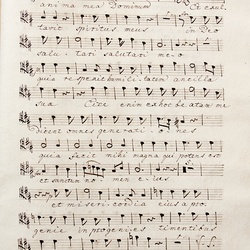 anima mea Dominum Et exul
tavit spiritus meus in Deo
salu - tari salutari me - o
quia respexit humilitatem ancilla
sua Ecce enim ex hoc beatam me
dicent omnes generati - o - nes
quia fecit mihi magna qui potens est
et sanctum no - men e - ius
et misericordia eius a pro
genie in progenies timentibus